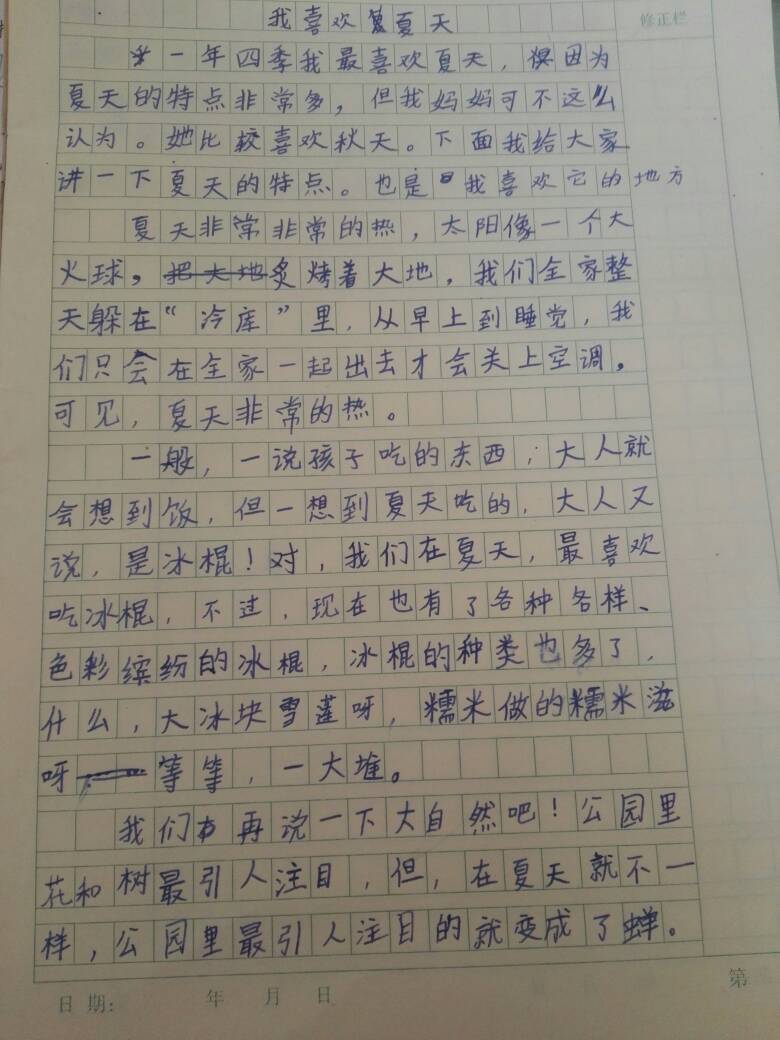 我喜欢夏天
修正栏
一年四季我最喜欢夏天，因为
夏天的特点非常多，但我妈妈可不这么
认为。她比较喜欢秋天。下面我给大家
讲一下夏天的特点。也是我喜欢它的地方
夏天非常非常的热，太阳像一个大
火球，把大地炙烤着大地，我们全家整
天躲在“冷库”里，从早上到睡觉，我
们只会在全家一起出去才会关上空调。
可见，夏天非常的热。
一般，一说孩子吃的东西，大人就
会想到饭，但一想到夏天吃的，大人又
说，是冰棍！对，我们在夏天，最喜欢
吃冰棍，不过，现在也有了各种各样、
色彩缤纷的冰棍，冰棍的种类也多了，
什么，大冰块雪莲呀，糯米做的糯米滋
呀等等，一大堆。
我们再说一下大自然吧！公园里
花和树最引人注目，但，在夏天就不一
样，公园里最引人注目的就变成了蝉。
第
日期： 年 月 日